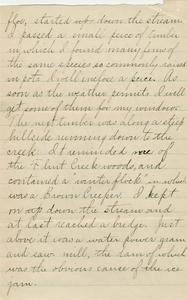 floe, started up down the stream.
I passed a small piece of timber
in which I found many ferns of
the same species so commonly raised
in pots. I will enclose a piece. As
soon as the weather permits I will
get some of them for my window.
The next timber was along a steep
hillside running down to the
creek. It reminded me
of the Flint Creek woods, and
contained a "winter flock" in which
was a Brown Creeper. I kept
on up down the stream and
at last reached a bridge. Just
above it was a water power gram
and saw mill, the dam of which
was the obvious cause of the ice
jam.